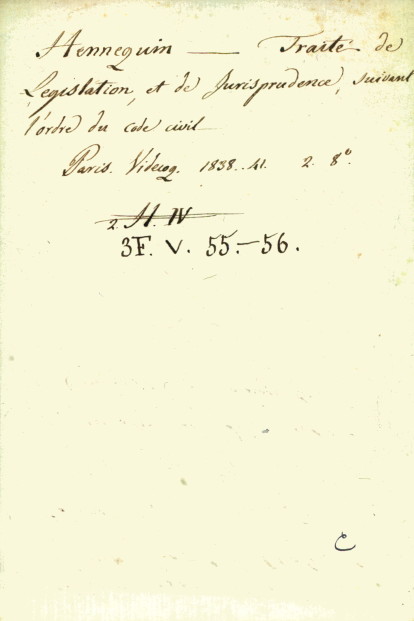 Hennequin — Traité de
Legislation, et de Jurisprudence, suivant
l'ordre du code civil
Paris. Videcoq. 1838..41. 2. 8°.
2. H. IV
3F. V. 55.–56.